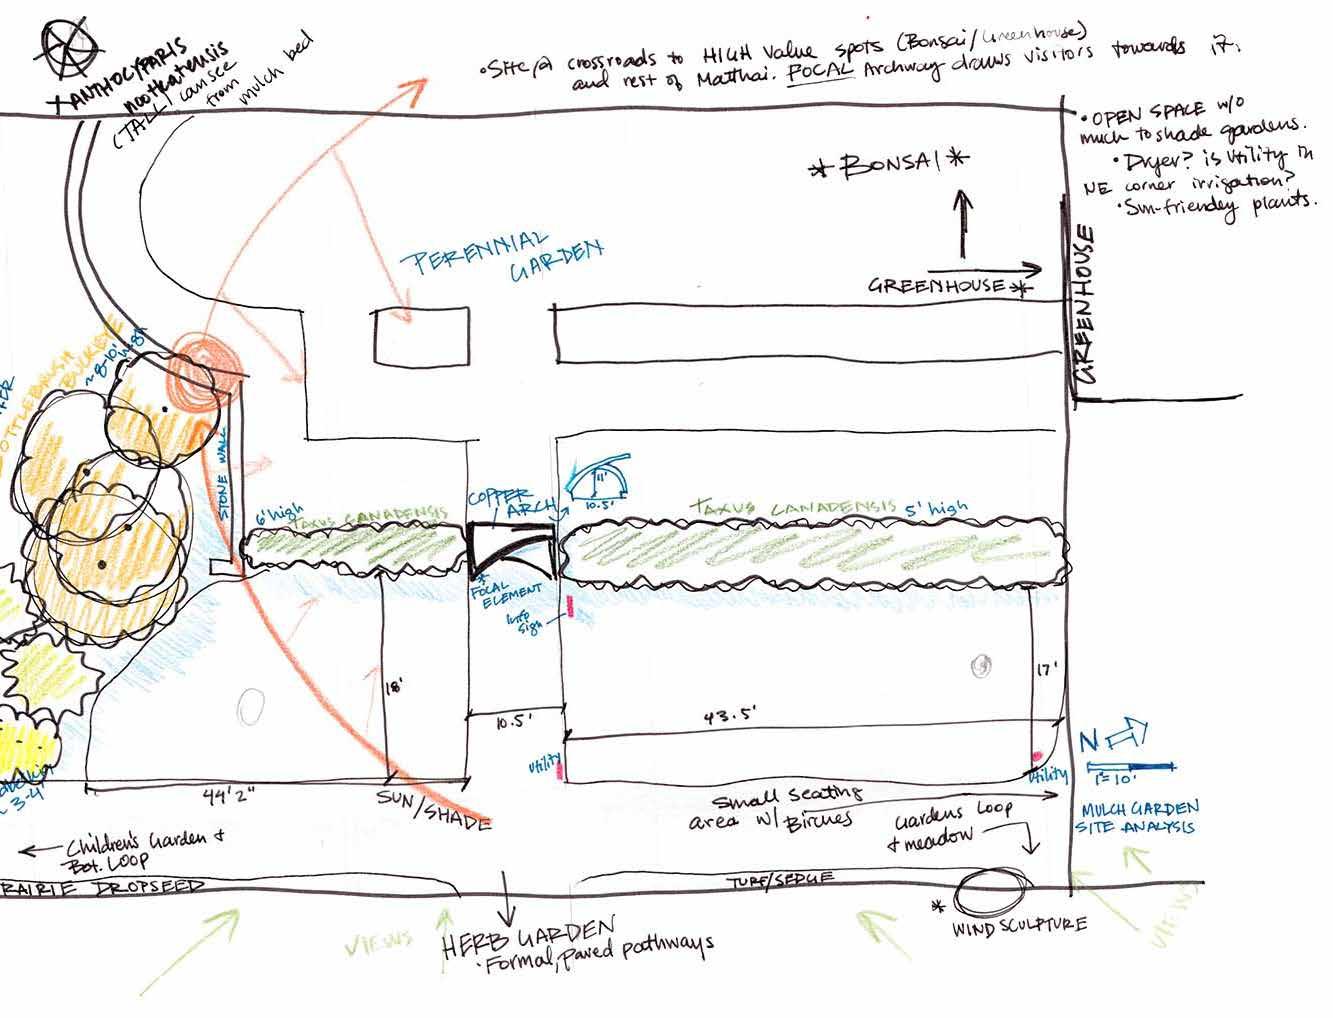 XANTHOCYPARIS
nootkatensis
(TALL) can see
from
mulch bed
• Site @ crossroads to HIGH Value spots (Bonsai/Greenhouse)
and rest of Matthai. FOCAL Archway draws visitors towards it.
• OPEN SPACE w/o
much to shade gardens.
• Dryer? is Utility in
NE corner irrigation?
• Sun-friendly plants.
* BONSAI *
GREENHOUSE *
GREENHOUSE
PERENNIAL
GARDEN
BOTTLEBRUSH
BUCKEYE
~8-10' high
STONE WALL
6' high
TAXUS CANADENSIS
COPPER
ARCH
11'
10.5'
TAXUS CANADENSIS 5' high
*
FOCAL
ELEMENT
info
sign
18'
17'
10.5'
43.5'
Utility
Utility
44'2"
SUN/SHADE
3-4'
Small seating
area w/ Birches
Gardens Loop
+ meadow
N
1"=10'
MULCH GARDEN
SITE ANALYSIS
Children's Garden +
Bot. LOOP
PRAIRIE DROPSEED
TURF/SEDGE
* WIND SCULPTURE
VIEWS
VIEWS
HERB GARDEN
• Formal, paved pathways